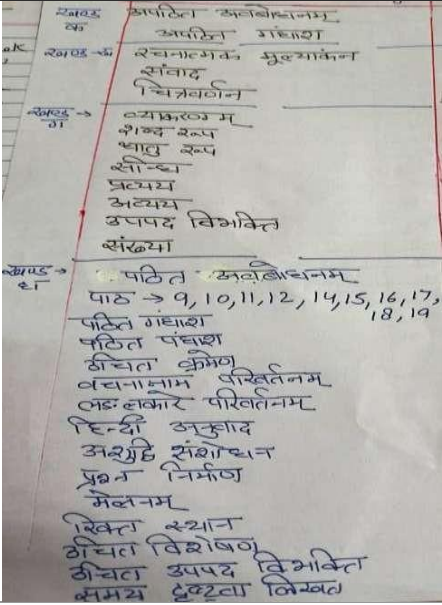 खण्ड क अपठित अवबोधनम्
अपठित गद्यांश
खण्ड-ख रचनात्मक मूल्यांकन
संवाद
चित्रवर्णन
खण्ड ग → व्याकरणम्
शब्द रूप
धातु रूप
सन्धि
प्रत्यय
अव्यय
उपपद विभक्ति
संख्या
खण्ड घ → पठित अवबोधनम्
पाठ → 9, 10, 11, 12, 14, 15, 16, 17,
18, 19
पठित गद्यांश
पठित पद्यांश
उचित क्रमेण
वचनानाम परिवर्तनम्
लङ लकारे परिवर्तनम्
हिन्दी अनुवाद
अशुद्धि संशोधन
प्रश्न निर्माण
मेलनम्
रिक्त स्थान
उचित विशेषण
उचित उपपद विभक्ति
समय दृष्ट्वा लिखत